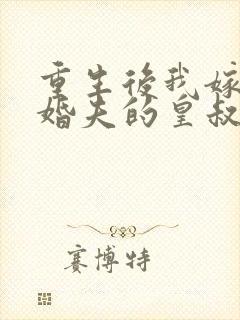 重生後我嫁
婚夫的皇叔
赛博特